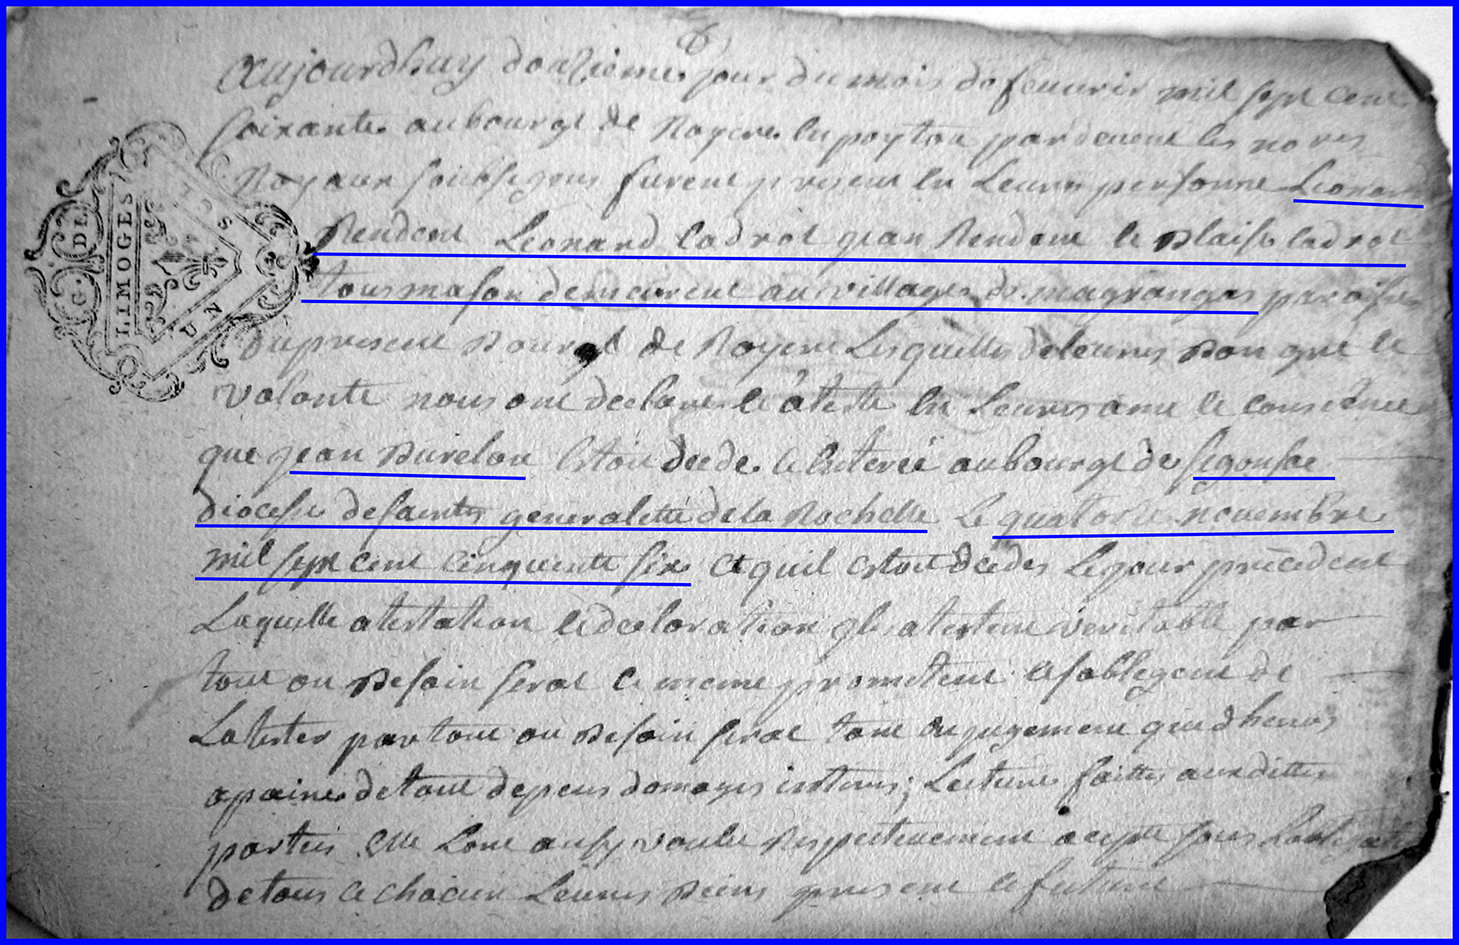 Aujourdhuy douzieme jour du mois de feuvrier mil sept cent
soixante au bourgt de Royere en poytou pardevent les nores
Royaux soubsignes furent present en leurs personne Leonard
Rendent Leonard Cadrot jean Rendent le Blaise Cadrot
tous mason demeurent au village de magranges paroisse
du present Bourgt de Royere Lesquelles deleurs Bon gre le
volonte nous ont declare le ateste en Leurs ame le consience
que jean Burelou estoit decede le enteré au bourgt de segonsac
diocese de saintes generalette de la Rochelle le quatorse novembre
mil sept cent cinquente six et quil estoit decedes Le jour precedent
Laquelle atestation le declaration ils atestent veritable par
tout ou Besoin serat le meme prometent le soblegent de
Latester par tout ou Besoin serat tant en jugement que dhors
apaine de tout depens domages interes; Lecture faitte aux dittes
parties elle Lont ainsy voulu Respectivement acepté sous
de tous le chacun Leurs Biens present le future
G. DE
LIMOGES
UN
SOLS